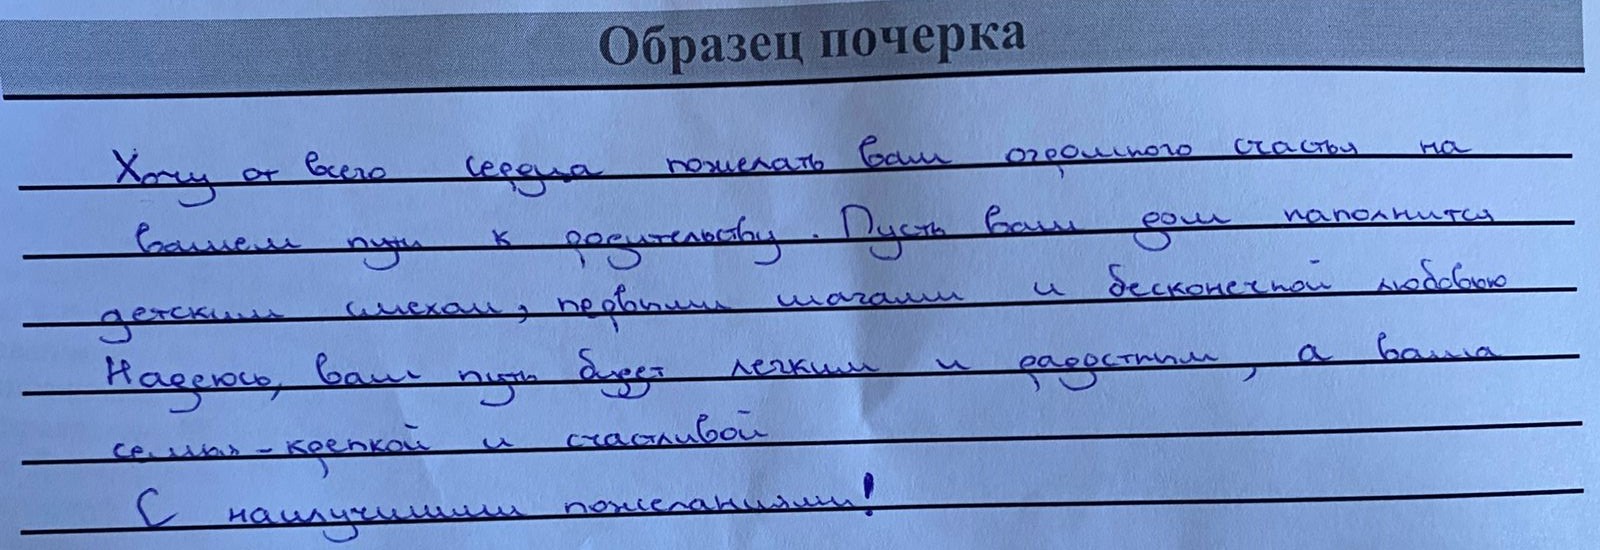 Образец почерка
Хочу от всего сердца пожелать вам огромного счастья на
вашем пути к родительству. Пусть ваш дом наполнится
детским смехом, первыми шагами и бесконечной любовью
Надеюсь, ваш путь будет легким и радостным, а ваша
семья - крепкой и счастливой
С наилучшими пожеланиями!